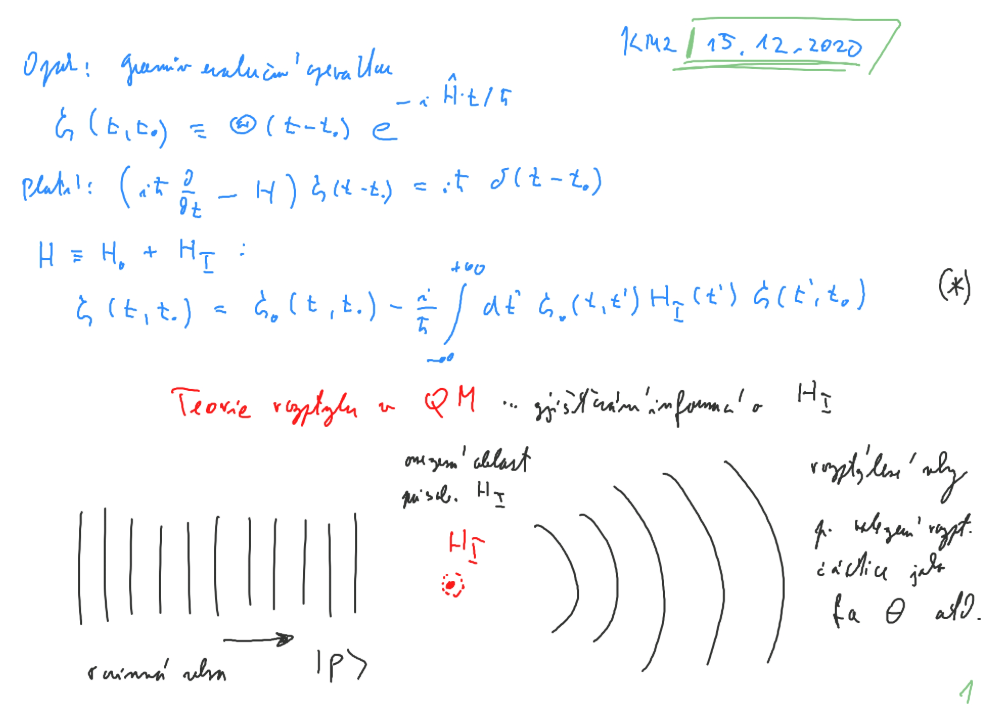 KM2 15.12.2020
Opak: evoluční
G (t,t₀) ≡ Θ (t-t₀) e^{-i Ĥ·t/ħ}
Platí: (iħ ∂/∂t - H) G(t-t₀) = iħ δ(t-t₀)
H ≡ H₀ + H_I :
G (t,t₀) = G₀ (t,t₀) - i/ħ ∫_{-∞}^{+∞} dt' G₀(t,t') H_I(t') G(t',t₀) (*)
Teorie rozptylu v QM ... zjišťování informací o H_I
omezení oblast
působ. H_I
H_I
rozptýlené vlny
p. nalezení rozpt.
částice jako
fa Θ atd.
rovinná vlna |p⟩
1